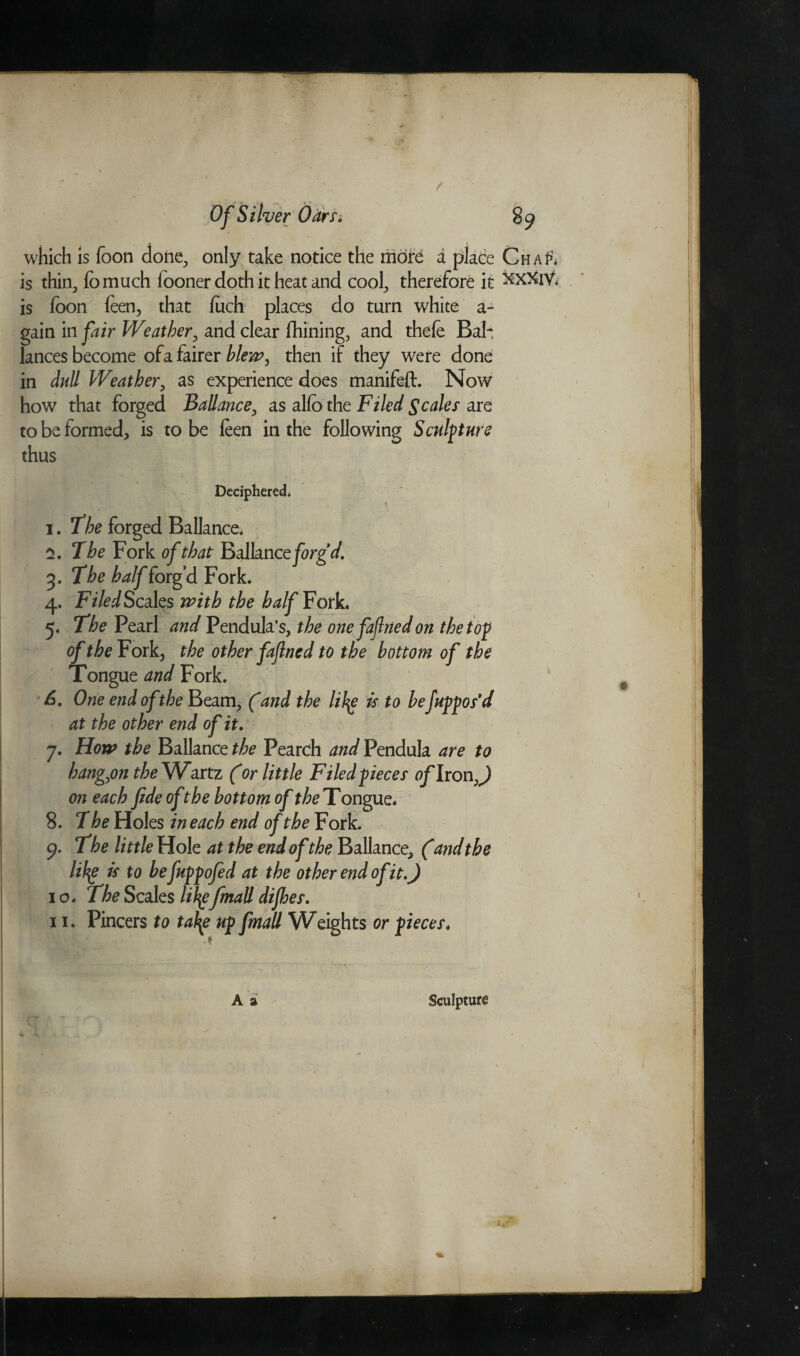 Of Silver Oars. 89
which is ſoon done, only take notice the more a place Chap.
is thin, ſo much ſooner doth it heat and cool, therefore it XXXIV.
is ſoon ſeen, that ſuch places do turn white a-
gain in fair Weather, and clear ſhining, and theſe Bal-
lances become of a fairer blew, then if they were done
in dull Weather, as experience does manifeſt. Now
how that forged Ballance, as alſo the Filed Scales are
to be formed, is to be ſeen in the following Sculpture
thus
Deciphered.
1. The forged Ballance.
2. The Fork of that Ballance forg'd.
3. The half forg'd Fork.
4. Filed Scales with the half Fork.
5. The Pearl and Pendula's, the one faſtned on the top
of the Fork, the other faſtned to the bottom of the
Tongue and Fork.
6. One end of the Beam, (and the like is to be ſuppos'd
at the other end of it.
7. How the Ballance the Pearch and Pendula are to
hang, on the Wartz (or little Filed pieces of Iron,)
on each ſide of the bottom of the Tongue.
8. The Holes in each end of the Fork.
9. The little Hole at the end of the Ballance, (and the
like is to be ſuppoſed at the other end of it.)
10. The Scales like ſmall diſhes.
11. Pincers to take up ſmall Weights or pieces.
A a Sculpture